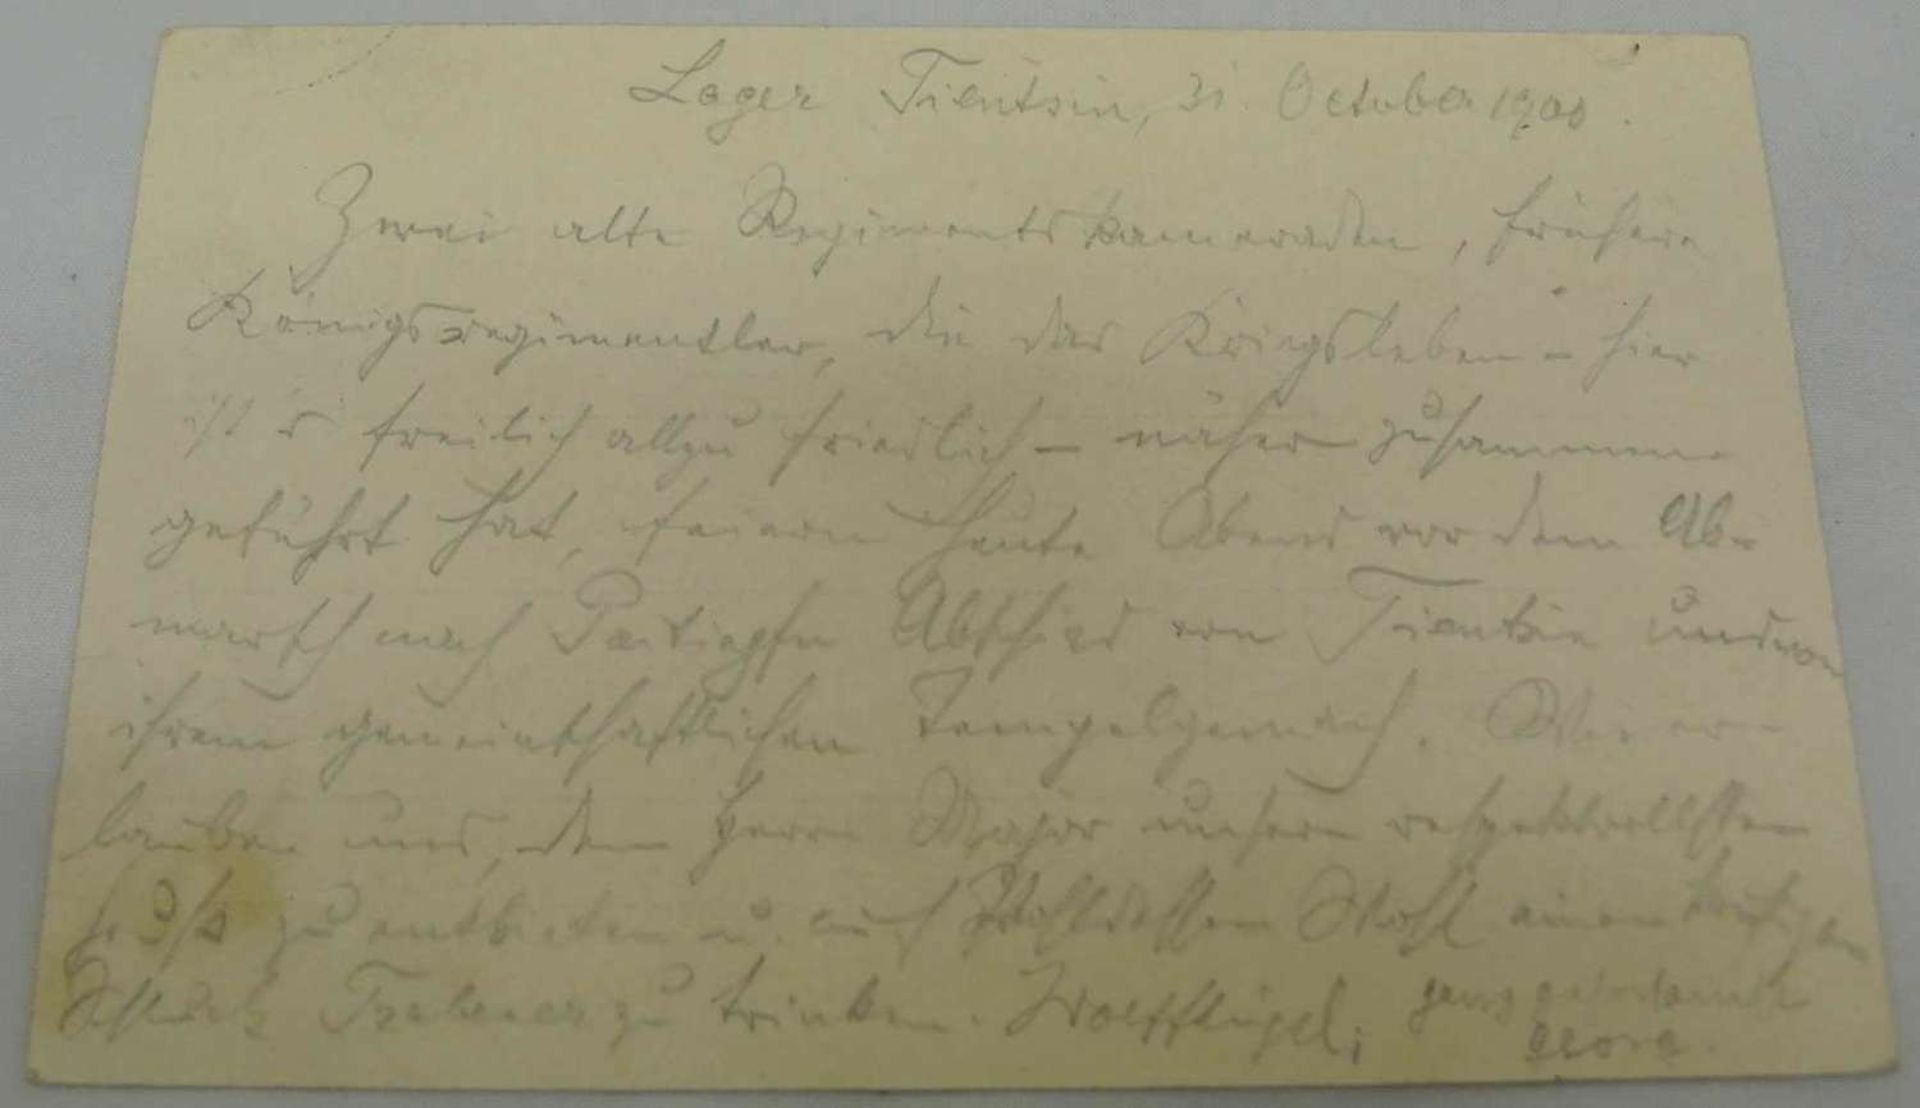 Lager Tientsin, 31. October 1900.
Zwei alte Regimentskameraden, frühere
Königsregimentler, die das Kriegsleben – hier
ist's freilich allzu friedlich – näher zusammen
geführt hat, feiern heute Abend vor dem Ab-
marsch nach Abschied von Tientsin und von
ihrem gemeinschaftlichen Tempelgemach. Wir er-
lauben uns, dem Herrn Major unsern respektvollsten
Gruß zu entbieten u. auf Wohl einen
Schluck zu trinken.